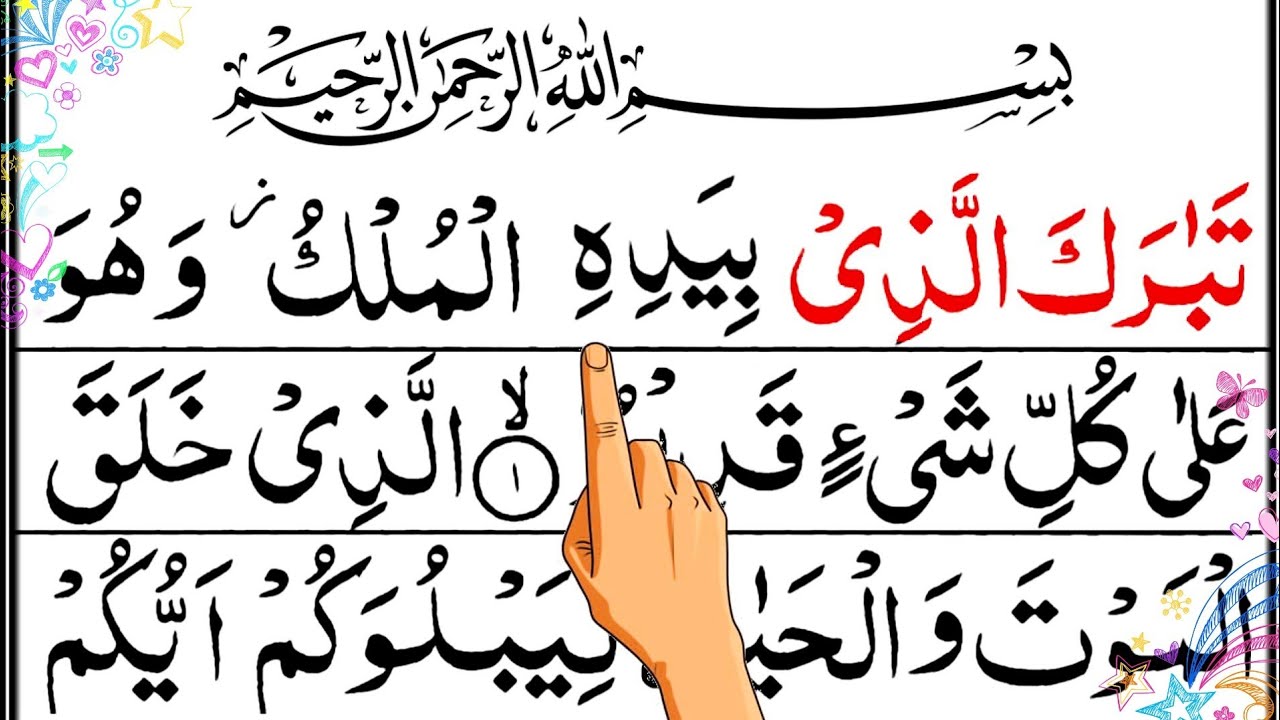 بِسْمِ اللّٰهِ الرَّحْمٰنِ الرَّحِيْمِ
تَبٰرَكَ الَّذِىْ بِيَدِهِ الْمُلْكُ ز وَهُوَ
عَلٰى كُلِّ شَىْءٍ قَدِيْرُ ۙ﴿١﴾ الَّذِىْ خَلَقَ
الْمَوْتَ وَالْحَيٰوةَ لِيَبْلُوَكُمْ اَيُّكُمْ